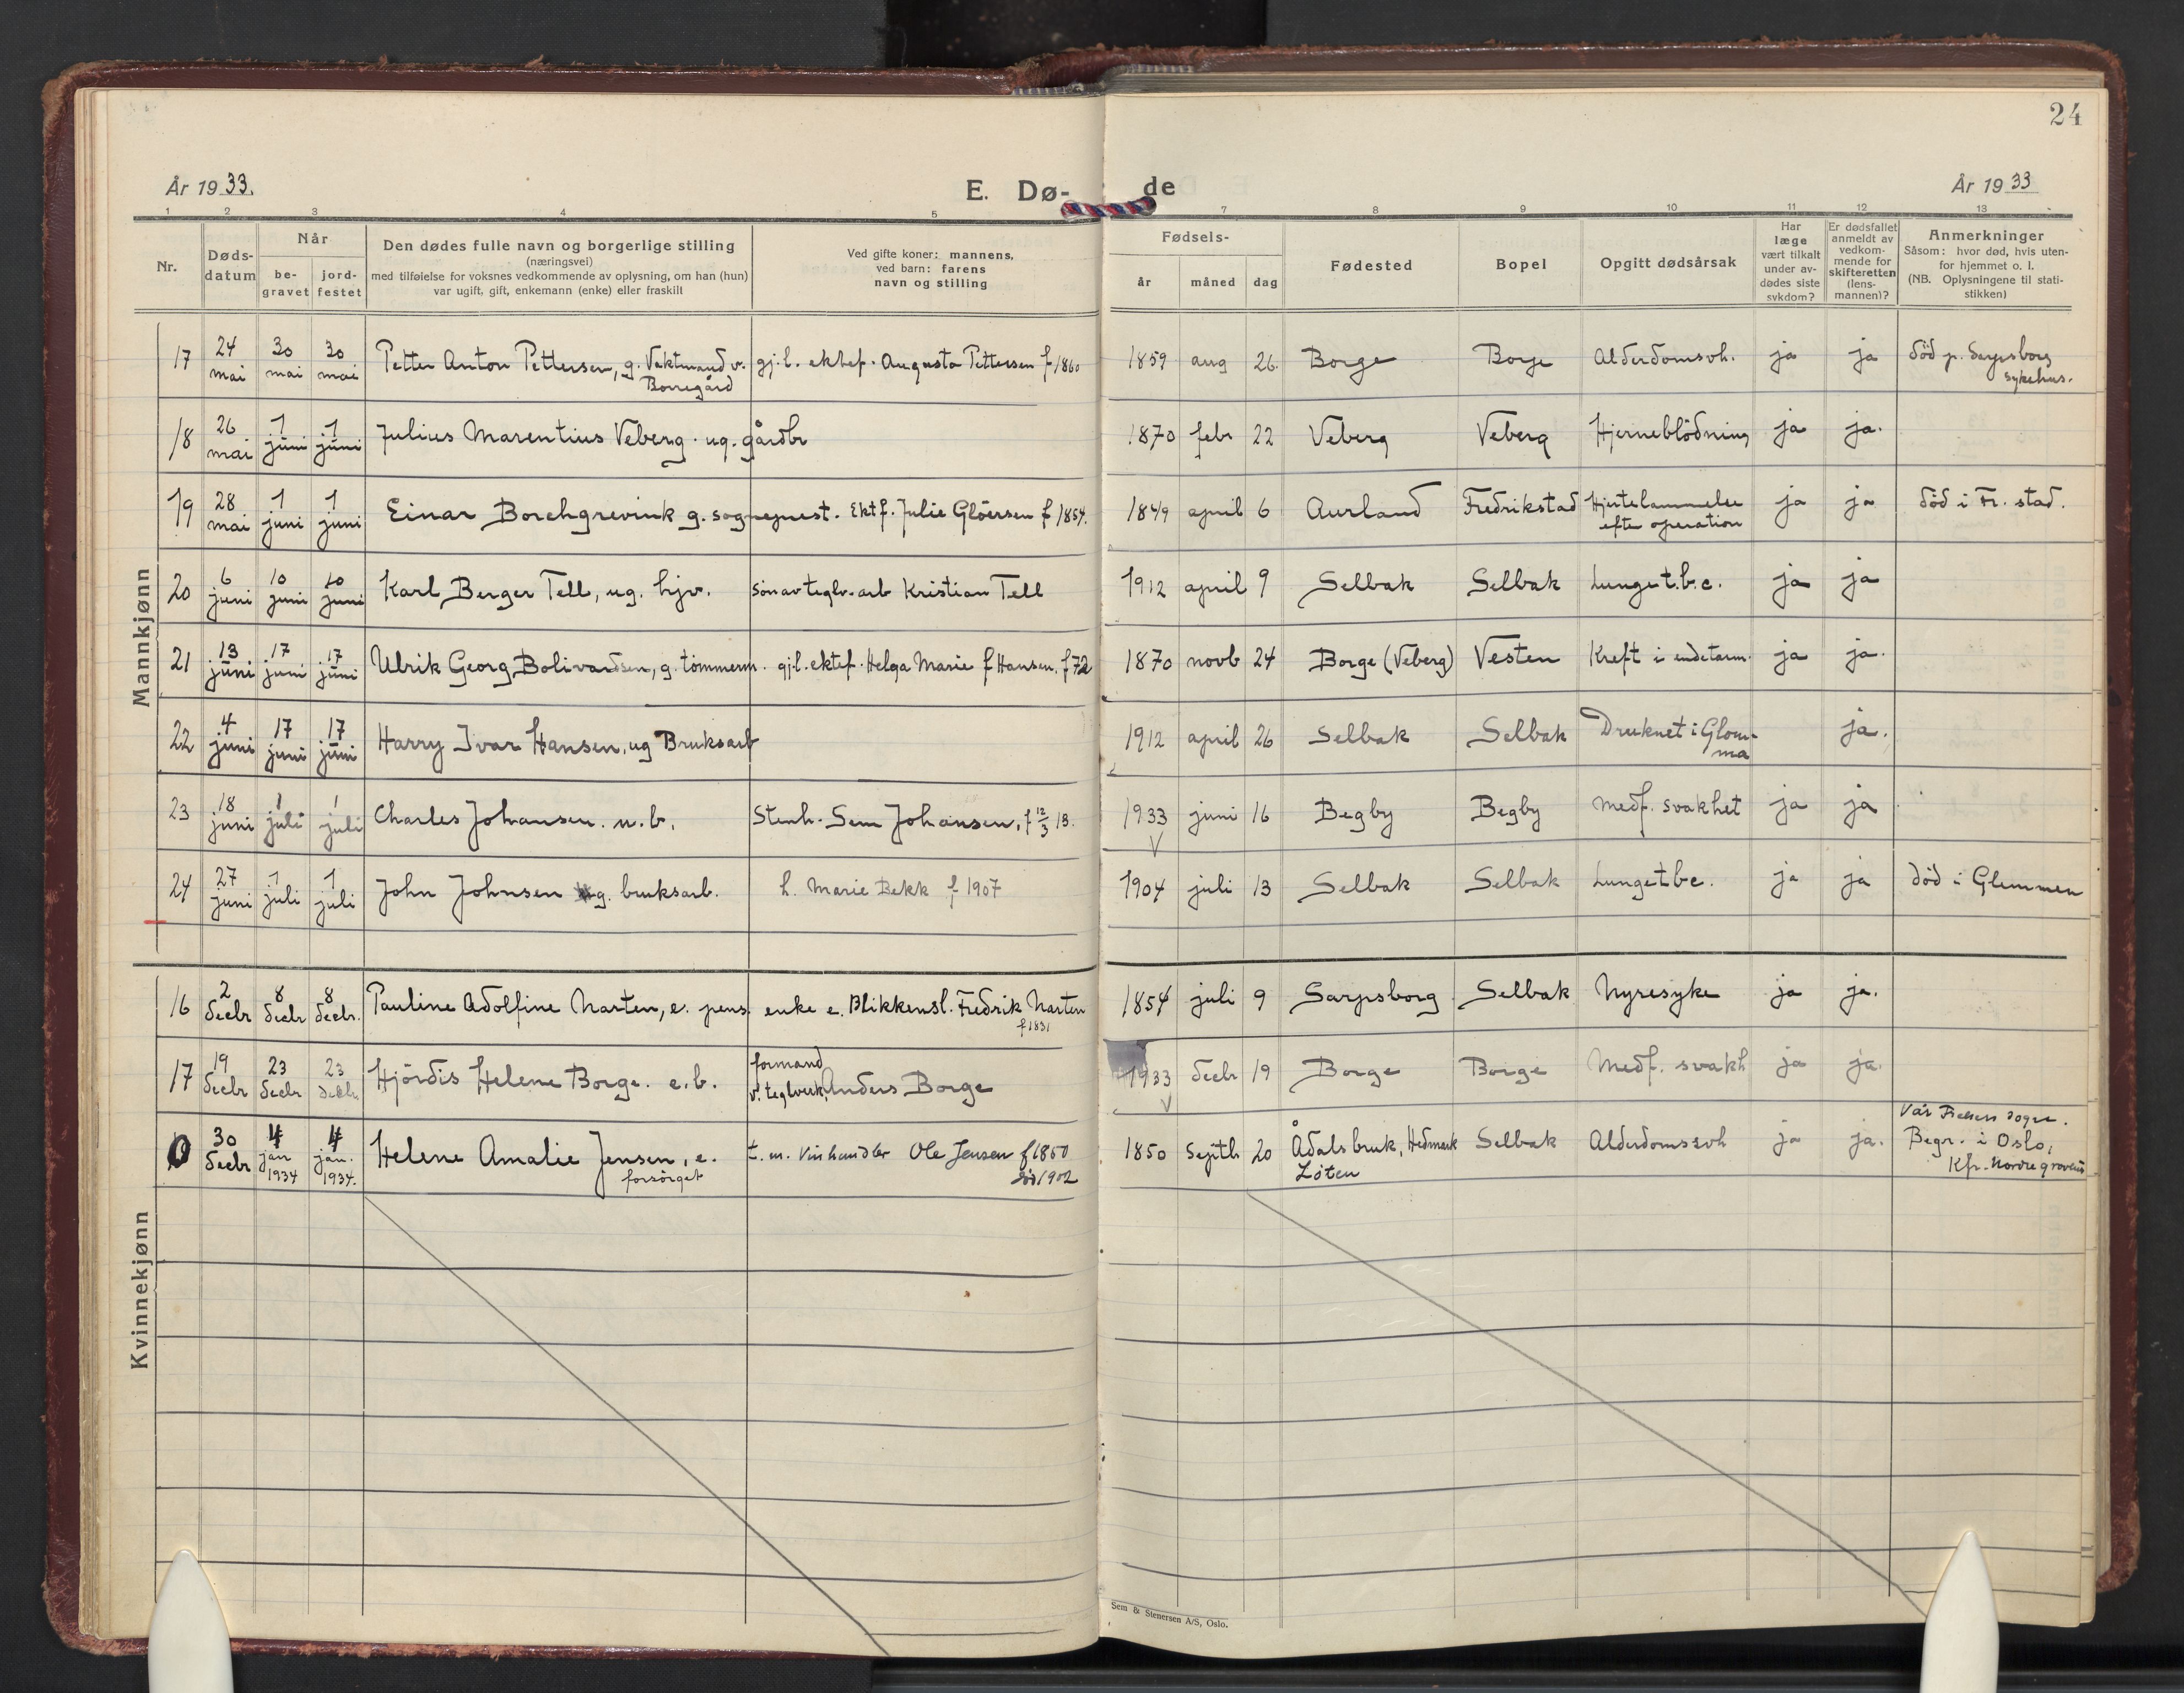 24
År 1933.
E. Dø-
de
År 1933
1 2 3 4 5 7 8 9 10 11 12 13
Nr.
Døds-
datum
Når
be-
gravet
jord-
festet
Den dødes fulle navn og borgerlige stilling
(næringsvei)
med tilføielse for voksnes vedkommende av oplysning, om han (hun)
var ugift, gift, enkemann (enke) eller fraskilt
Ved gifte koner: mannens,
ved barn: farens
navn og stilling
Fødsels-
år måned dag
Fødested
Bopel
Opgitt dødsårsak
Har
læge
vært tilkalt
under av-
dødes siste
sykdom?
Er dødsfallet
anmeldt av
vedkom-
mende for
skifteretten
(lens-
mannen)?
Anmerkninger
Såsom: hvor død, hvis uten-
for hjemmet o. l.
(NB. Oplysningene til stati-
stikken)
Mannkjønn
17 24 mai 30 mai 30 mai Petter Anton Pettersen, g. Vaktmand v. Borregård gj.l. ektef. Augusta Pettersen f 1860 1859 aug 26. Borge Borge Alderdomsvh. ja ja død p. Sarpsborg sykehus.
18 26 mai 1 juni 1 juni Julius Marentius Veberg. ug. gårdbr 1870 febr 22 Veberg Veberg Hjerneblødning ja ja.
19 28 mai 1 juni 1 juni Einar Borchgrevink g. sogneprest. Ektf. Julie Gløersen f 1854. 1849 april 6 Aurland Fredrikstad Hjertelammelse efter operation ja ja død i Fr. stad.
20 6 juni 10 juni 10 juni Karl Berger Tell, ug. hjv. søn av teglv. arb Kristian Tell 1912 april 9 Selbak Selbak Lunget.b.c. ja ja
21 13 juni 17 juni 17 juni Ulrik Georg Bolivardsen, g. tømmerm. gj.l. ektef. Helga Marie f Hansen. f 72 1870 novb 24 Borge (Veberg) Vesten Kreft i endetarm. ja ja.
22 4 juni 17 juni 17 juni Harry Ivar Hansen, ug Bruksarb 1912 april 26 Selbak Selbak Druknet i Glom-ma ja.
23 18 juni 1 juli 1 juli Charles Johansen. u.b. Stenh. Sem Johansen, f 12/3 13. 1933 juni 16 Begby Begby medf. svakhet ja ja
24 27 juni 1 juli 1 juli John Johnsen g. bruksarb. h. Marie Bekk f 1907 1904 juli 13 Selbak Selbak Lungetbc. ja ja død i Glemmen
Kvinnekjønn
16 2 decbr 8 decbr 8 decbr. Pauline Adolfine Narten, e. pens. enke e. Blikkensl. Fredrik Narten f 1831 1854 juli 9 Sarpsborg Selbak Nyresyke ja ja.
17 19 decbr 23 decbr 23 decbr. Hjørdis Helene Borge. e.b. formand v. teglverk, Anders Borge 1933 decbr 19 Borge Borge Medf. svakh ja ja.
0 30 decbr 4 jan 1934 4 jan. 1934. Helene Amalie Jensen, e. forsørget t. m. Vinhandler Ole Jensen f 1850 død 1902 1850 Septb 20 Ådalsbruk, Hedmark Løten Selbak Alderdomssvh ja ja. Vår Frelsers sogn. Begr. i Oslo, Kfr. Nordre gravlund
Sem & Stenersen A/S, Oslo.